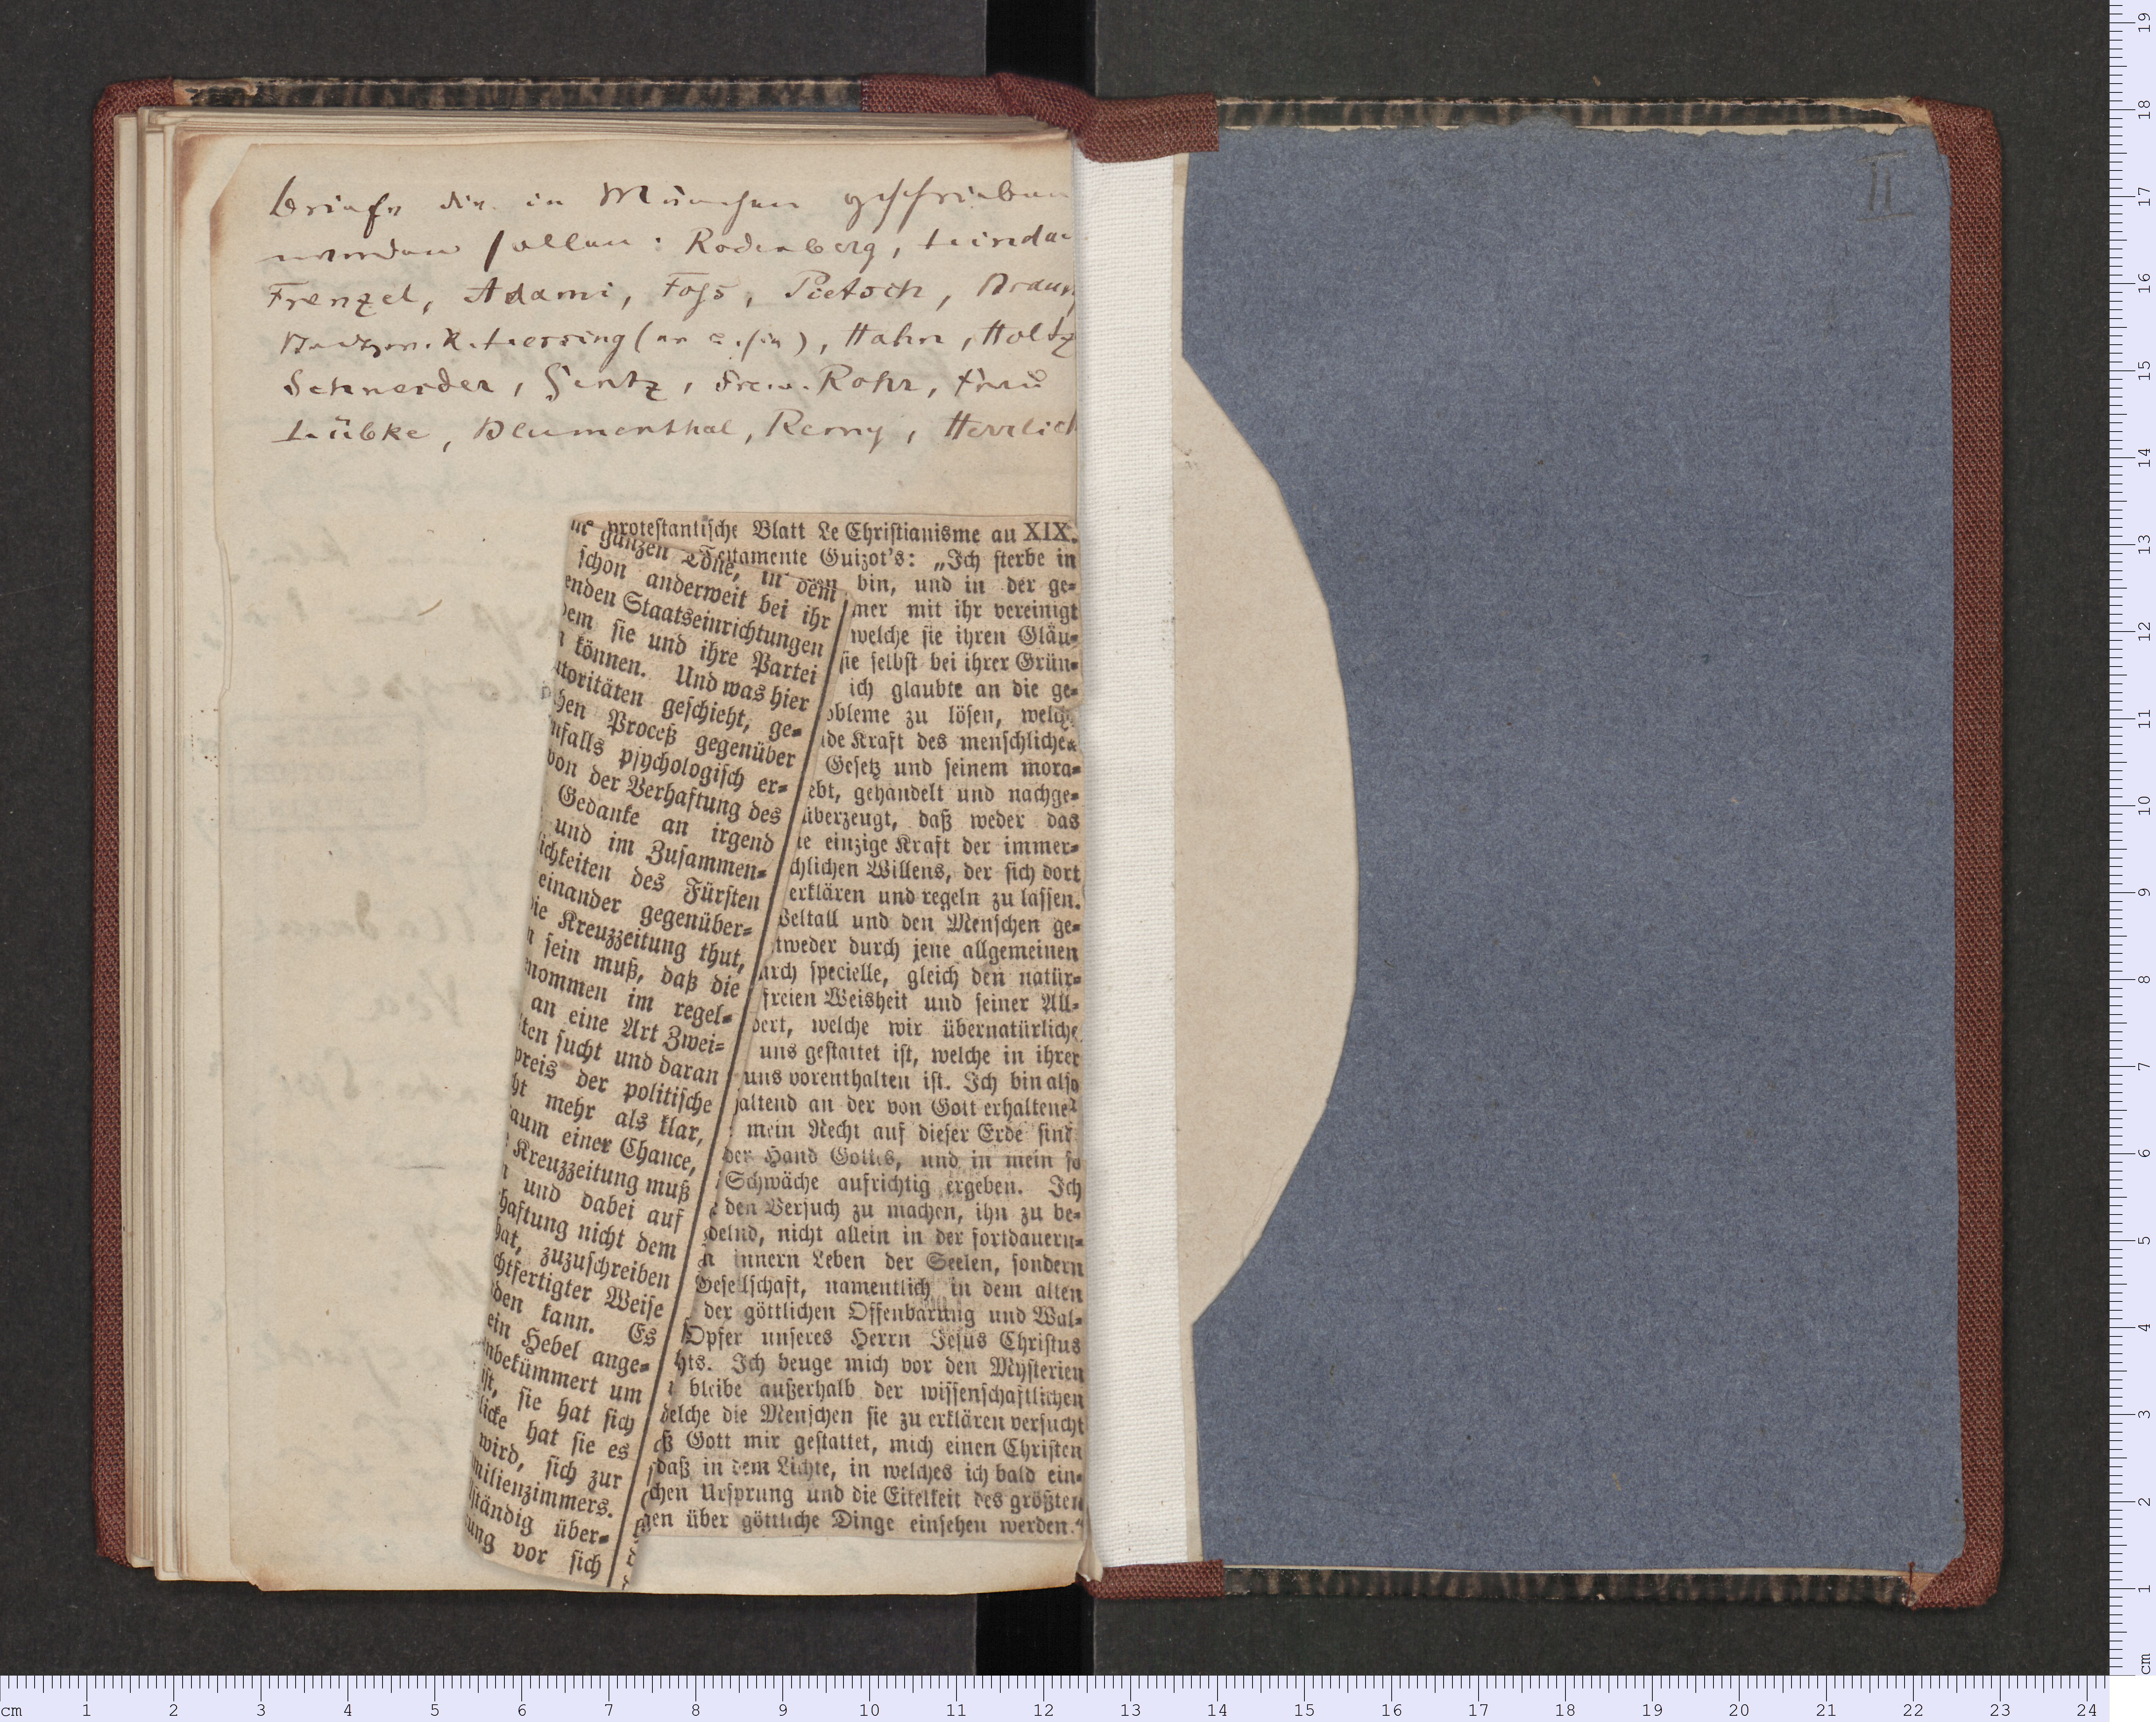 Briefe die in München geschrieben
werden sollen: Rodenberg, Linda
Frenzel, Adami, Foss, Pietsch, Braun
K. Lessing (an u. sie), Hahn, Holtz
Schneider, Gentz, Frau Rohr, Frau
Lübke, Blumenthal, Remy, Herrlich
II
protestantische Blatt Le Christianisme au XIX.
Testamente Guizot's: „Ich sterbe in
bin, und in der ge-
mer mit ihr vereinigt
welche sie ihren Gläu-
sie selbst bei ihrer Grün-
ich glaubte an die ge-
obleme zu lösen, welch
de Kraft des menschlichen
Gesetz und seinem mora-
ebt, gehandelt und nachge-
überzeugt, daß weder das
ie einzige Kraft der immer-
chlichen Willens, der sich dort
erklären und regeln zu lassen.
Weltall und den Menschen ge-
tweder durch jene allgemeinen
urch specielle, gleich den natür-
freien Weisheit und seiner All-
dert, welche wir übernatürliche
uns gestattet ist, welche in ihrer
uns vorenthalten ist. Ich bin also
altend an der von Gott erhaltenen
mein Recht auf dieser Erde sind
der Hand Gottes, und in mein so
Schwäche aufrichtig ergeben. Ich
den Versuch zu machen, ihn zu be-
delnd, nicht allein in der fortdauern-
n innern Leben der Seelen, sondern
Gesellschaft, namentlich in dem alten
der göttlichen Offenbarung und Wal-
Opfer unseres Herrn Jesus Christus
hts. Ich beuge mich vor den Mysterien
bleibe außerhalb der wissenschaftlichen
welche die Menschen sie zu erklären versucht
aß Gott mir gestattet, mich einen Christen
daß in dem Lichte, in welches ich bald ein-
chen Ursprung und die Eitelkeit des größten
gen über göttliche Dinge einsehen werden.“
ganzen Tone, in dem
schon anderweit bei ihr
enden Staatseinrichtungen
dem sie und ihre Partei
n können. Und was hier
utoritäten geschieht, ge-
chen Proceß gegenüber
nfalls psychologisch er-
von der Verhaftung des
Gedanke an irgend
und im Zusammen-
ichkeiten des Fürsten
einander gegenüber-
die Kreuzzeitung thut,
n sein muß, daß die
nommen im regel-
an eine Art Zwei-
ten sucht und daran
preis der politische
ht mehr als klar,
aum einer Chance,
Kreuzzeitung muß
n und dabei auf
haftung nicht dem
hat, zuzuschreiben
chtfertigter Weise
den kann. Es
ein Hebel ange-
unbekümmert um
ist, sie hat sich
licke hat sie es
wird, sich zur
milienzimmers.
ständig über-
ung vor sich